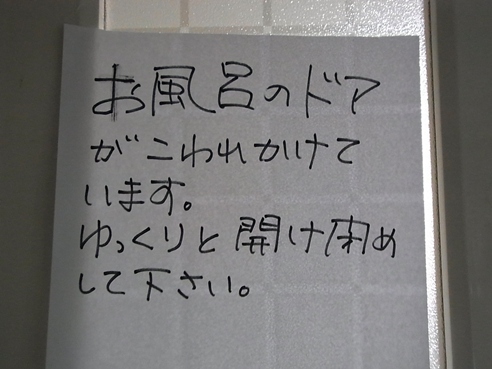 お風呂のドア
がこわれかけて
います。
ゆっくりと開け閉め
して下さい。